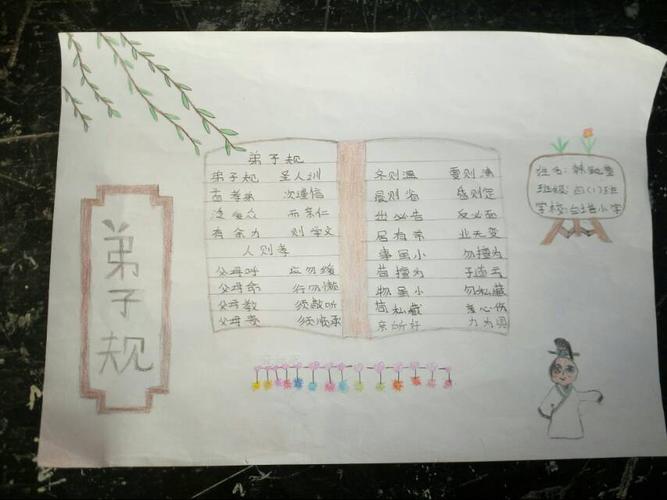 弟子规
弟子规
弟子规 圣人训
首孝弟 次谨信
泛爱众 而亲仁
有余力 则学文
人则孝
父母呼 应勿缓
父母命 行勿懒
父母教 须敬听
父母责 须顺承
冬则温 夏则凊
晨则省 昏则定
出必告 反必面
居有常 业无变
事虽小 勿擅为
苟擅为 子道亏
物虽小 勿私藏
苟私藏 亲心伤
亲所好 力为具
姓名:韩
班级:四(1)班
学校:台增小学